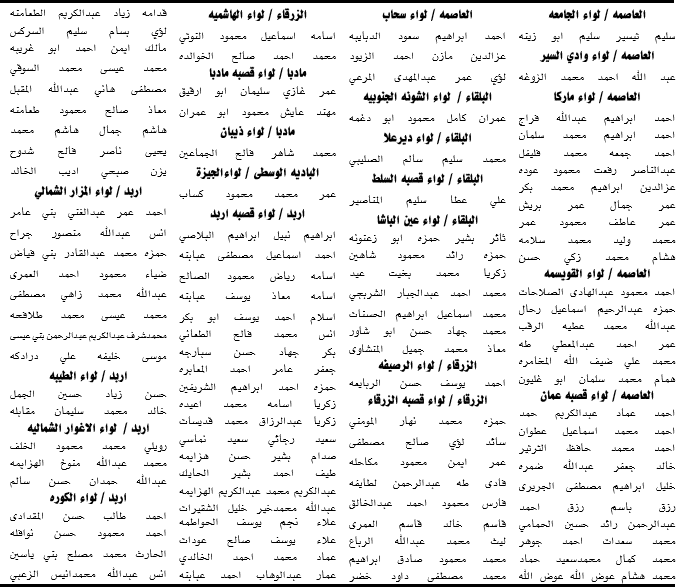 العاصمه / لواء الجامعه
سليم تيسير سليم ابو زينه
العاصمه / لواء وادي السير
عبد الله احمد محمد الزوغه
العاصمه / لواء ماركا
احمد ابراهيم عبدالله فراج
احمد ابراهيم محمد سلمان
احمد جمعه محمد فليفل
عبدالناصر رفعت محمود عوده
عزالدين ابراهيم محمد بكر
عمر جمال عمر بريش
عمر عاطف محمود عمر
محمد وليد محمد سلامه
هشام محمد زكي حسن
العاصمه / لواء القويسمه
احمد محمود عبدالهادي الصلاحات
حمزه عبدالرحيم اسماعيل رحال
عبدالله محمد عطيه الرقب
عمر احمد عبدالمعطي طه
محمد علي ضيف الله المخامره
همام محمد سلمان ابو غليون
العاصمه / لواء قصبه عمان
احمد عماد عبدالكريم حمد
احمد محمد اسماعيل عطوان
احمد محمد حافظ الترتير
خالد جعفر عبدالله ضمره
خليل ابراهيم مصطفى الجريري
رزق باسم رزق احمد
عبدالرحمن رائد حسين الحمامي
محمد سعدات احمد جوهر
محمد كمال محمدسعيد حماد
محمد هشام عوض الله عوض الله
العاصمه / لواء سحاب
احمد ابراهيم سعود الدبايبه
عزالدين مازن احمد الزيود
لؤي عمر عبدالمهدي المرعي
البلقاء / لواء الشونه الجنوبيه
عمران كامل محمود ابو دغمه
البلقاء / لواء ديرعلا
محمد سليم سالم الصليبي
البلقاء / لواء قصبه السلط
علي عطا سليم المناصير
البلقاء / لواء عين الباشا
ثائر بشير حمزه ابو زعنونه
حمزه رائد محمود شاهين
زكريا محمد بخيت عيد
محمد احمد عبدالجبار الشربجي
محمد اسماعيل ابراهيم الحسنات
محمد جهاد حسن ابو شاور
معاذ محمد جميل المنشاوي
الزرقاء / لواء الرصيفه
احمد يوسف حسن الربايعه
الزرقاء / لواء قصبه الزرقاء
حمزه محمد نهار المومني
سائد لؤي صالح مصطفى
عمر ايمن محمود مكاحله
فادي طه عبدالرحمن لطايفه
فارس محمود احمد عبدالخالق
قاسم خالد قاسم العمري
ليث محمد عبدالله الرباع
محمد محمود صادق ابراهيم
محمد مصطفى داود خضر
الزرقاء / لواء الهاشميه
اسامه اسماعيل محمود التوتي
محمد احمد صالح الخوالده
مادبا / لواء قصبه مادبا
عمر غازي سليمان ابو ارفيق
مهند عايش محمود ابو عمران
مادبا / لواء ذيبان
محمد شاهر فالح الجماعين
الباديه الوسطى / لواءالجيزة
عمر محمد محمود كساب
اربد / لواء قصبه اربد
ابراهيم نبيل ابراهيم البلاصي
احمد اسماعيل مصطفى عبابنه
اسامه رياض محمود الصالح
اسامه معاذ يوسف عبابنه
اسلام احمد يوسف ابو بكر
انس محمد فالح الطعاني
بكر جهاد حسن سبارجه
جعفر عامر احمد المعابره
حمزه احمد ابراهيم الشريفين
زكريا اسامه محمد اعيده
زكريا عبدالرزاق محمد قديسات
سعيد رجائي سعيد نماسي
صدام بشير حسن هزايمه
طيف احمد بشير الحايك
عبدالكريم محمد عبدالكريم الهزايمه
عبدالله محمدخير خليل الشقيرات
علاء نجم يوسف الحواطمه
علاء يوسف صالح عودات
عماد محمد احمد الخالدي
عمار عبدالوهاب احمد عبابنه
قدامه زياد عبدالكريم الطعامنه
لؤي بسام سليم السركس
مالك ايمن احمد ابو غريبه
محمد عيسى محمد السوقي
مصطفى هاني عبدالله المقبل
معاذ صالح محمود طعامنه
هاشم جمال هاشم محمد
يحيى ناصر فالح شدوح
يزن صبحي اديب الخالد
اربد / لواء المزار الشمالي
احمد عمر عبدالغني بني عامر
انس عبدالله منصور جراح
حمزه محمد عبدالقادر بني فياض
ضياء محمود احمد العمري
عبدالله محمد زاهي مصطفى
محمد عيسى محمد طلافحه
محمدشرف عبدالكريم عبدالرحمن بني عيسى
موسى خليفه علي درادكه
اربد / لواء الطيبه
حسن زياد حسين الجمل
خالد محمد سليمان مقابله
اربد / لواء الاغوار الشماليه
رويلي محمد محمود الخلف
محمد عبدالله منوخ الهزايمه
عبدالله حمدان حسن سالم
اربد / لواء الكوره
احمد طالب حسن المقدادي
احمد محمود حسن نوافله
الحارث محمد مصلح بني ياسين
انس عبدالله محمدانيس الزعبي